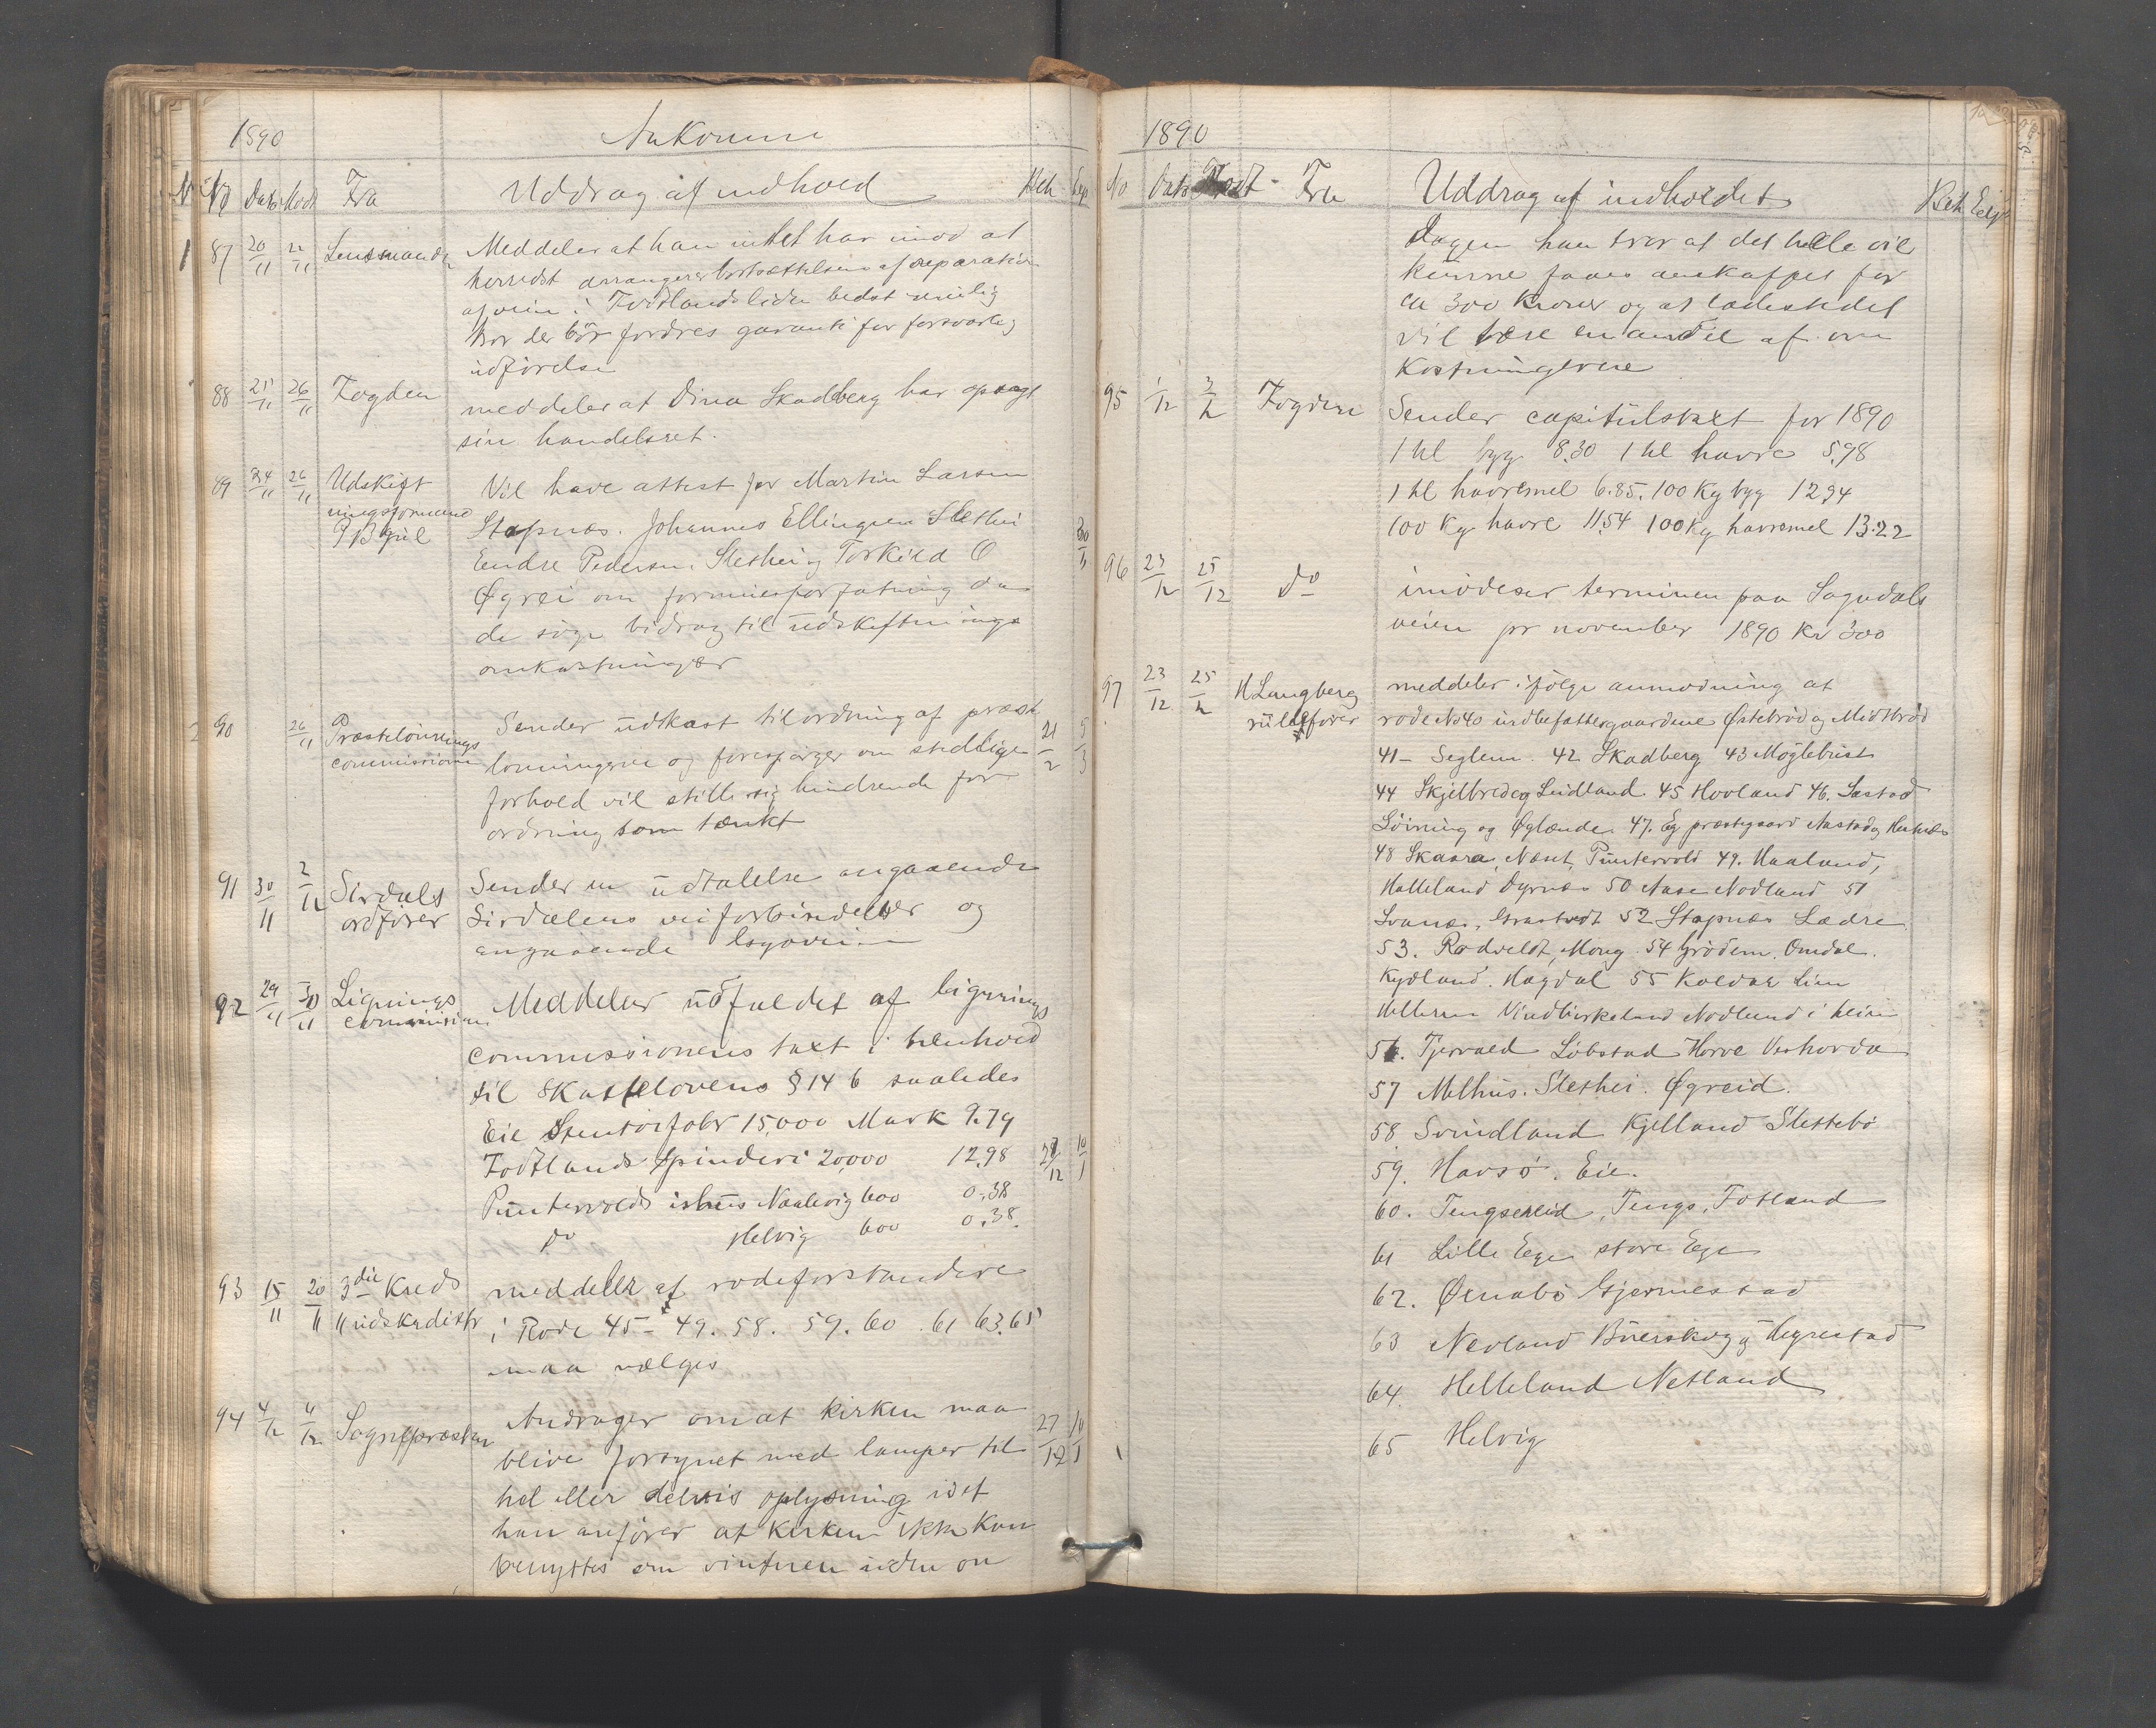 1890 Ankomm
No Dato Modt Fra Uddrag af indhold Beh Exp
87 20/11 22/11 Lensmanden Meddeler at han intet har imod at
herredet arrangerer fortsættelsen af reparation
af veien i Fodtlandslien bedst mulig
hvor der bör fordres garanti for forsvarlig
udförelse
88 25/11 26/11 Fogden meddeler at Dina Skadberg har opsagt
sin handelsret.
89 24/11 26/11 Udskift
ningsformand
Vil have attest for Martin Larsen
Stapnæs. Johannes Ellingsen Slethei
Endre Pedersen Slethei og Torkild O
Øgrei om formuesforfatning da
de söge bidrag til udskiftnings
omkostninger
30/11
90 26/11 Præstelönnings
commissionen
Sender udkast til ordning af præste
lönningerne og forespörger om stedlige
forhold vil stille sig hindrende for
ordning som tænkt
21/2 5/3
91 30/11 2/12 Sirdals
ordförer
Sender en udtalelse angaaende
Sirdalens veiforbindelser og
angaaende
92 29/11 30/11 Lignings
commission
Meddeler udfaldet af lignings
commissionens taxt i henhold
til Skattelovens § 14 b saaledes
Eie Stentöifabr 15,000 Mark 9.79
Fodtlands Spinderi 20,000 12,98
Puntervolds ishus Naalevig 600 0.38
do Helvig 600 0.38.
27/12 10/1
93 15/11 20/11 3die Kreds
udskrdistr
meddeler at rodeforstandere
i Rode 45 - 49. 58. 59. 60. 61 63. 65
maa vælges
94 4/12 4/12 Sognepræsten Andrager om at kirken maa
blive forsynet med lamper til
hel eller delvis oplysning idet
han anförer at kirken ikke kan
benyttes om vinteren uden om
27/12 10/1
1890
No Dato Modt Fra Uddrag af indholdet Beh Exp
dagen han tror at det hele vil
kunne faaes anskaffet for
ca 300 Kroner og at ladestedet
vil bære en andel af om
kostningerne
95 1/12 3/12 Fogden Sender capitulstaxt for 1890
1 hl byg 8.30 1 hl havre 5.98
1 hl havremel 6.85. 100 Kg byg 12.94
100 Kg havre 11.54 100 Kg havremel 13.22
96 23/12 25/12 do imödeser terminen paa Sogndals
veien pr november 1890 Kr 300
97 23/12 25/12 H Langberg
rulleförer
meddeler ifölge anmodning at
rode No 40 indbefatter gaardene Östebröd og Midtbröd
41 - Seglem. 42 Skadberg 43 Möglebust
44 Skjelbred og Leidland. 45 Hovland 46. Sæstad
Löining og Øglænde. 47. Eg præstegaard Aastad og
48 Skaara, Næset, Puntervold 49. Haaland,
Halleland Dyrnæs 50 Aase Nodland 51
Svanæs, Grastvedt 52 Stapnæs Lædre
53. Rodveldt, Mong. 54 Grödem. Omdal.
Kydland. Hagdal 55 Koldal Lien
Helleren Vindbirkeland Nodland i heien
56. Tjervald Löbstad Horve Veshovda
57 Melhus. Slethei. Øgreid.
58 Svindland Kjelland Slettebö
59. Havsö. Eie.
60. Tengsereid, Tengs, Fotland
61 Lille Ege store Ege
62. Örnabö Gjermestad
63 Nevland Buerskog og Hegrestad
64. Helleland Netland
65 Helvig